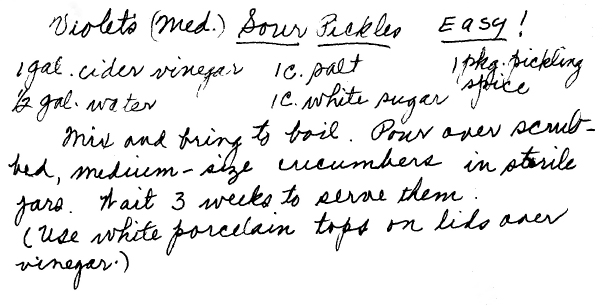 Violet's (Med.) Sour Pickles Easy!
1 gal. cider vinegar 1 c. salt 1 pkg. pickling spice
½ gal. water 1 c. white sugar
Mix and bring to boil. Pour over scrub-
bed, medium-size cucumbers in sterile
jars. Wait 3 weeks to serve them.
(Use white porcelain tops on lids over
vinegar.)